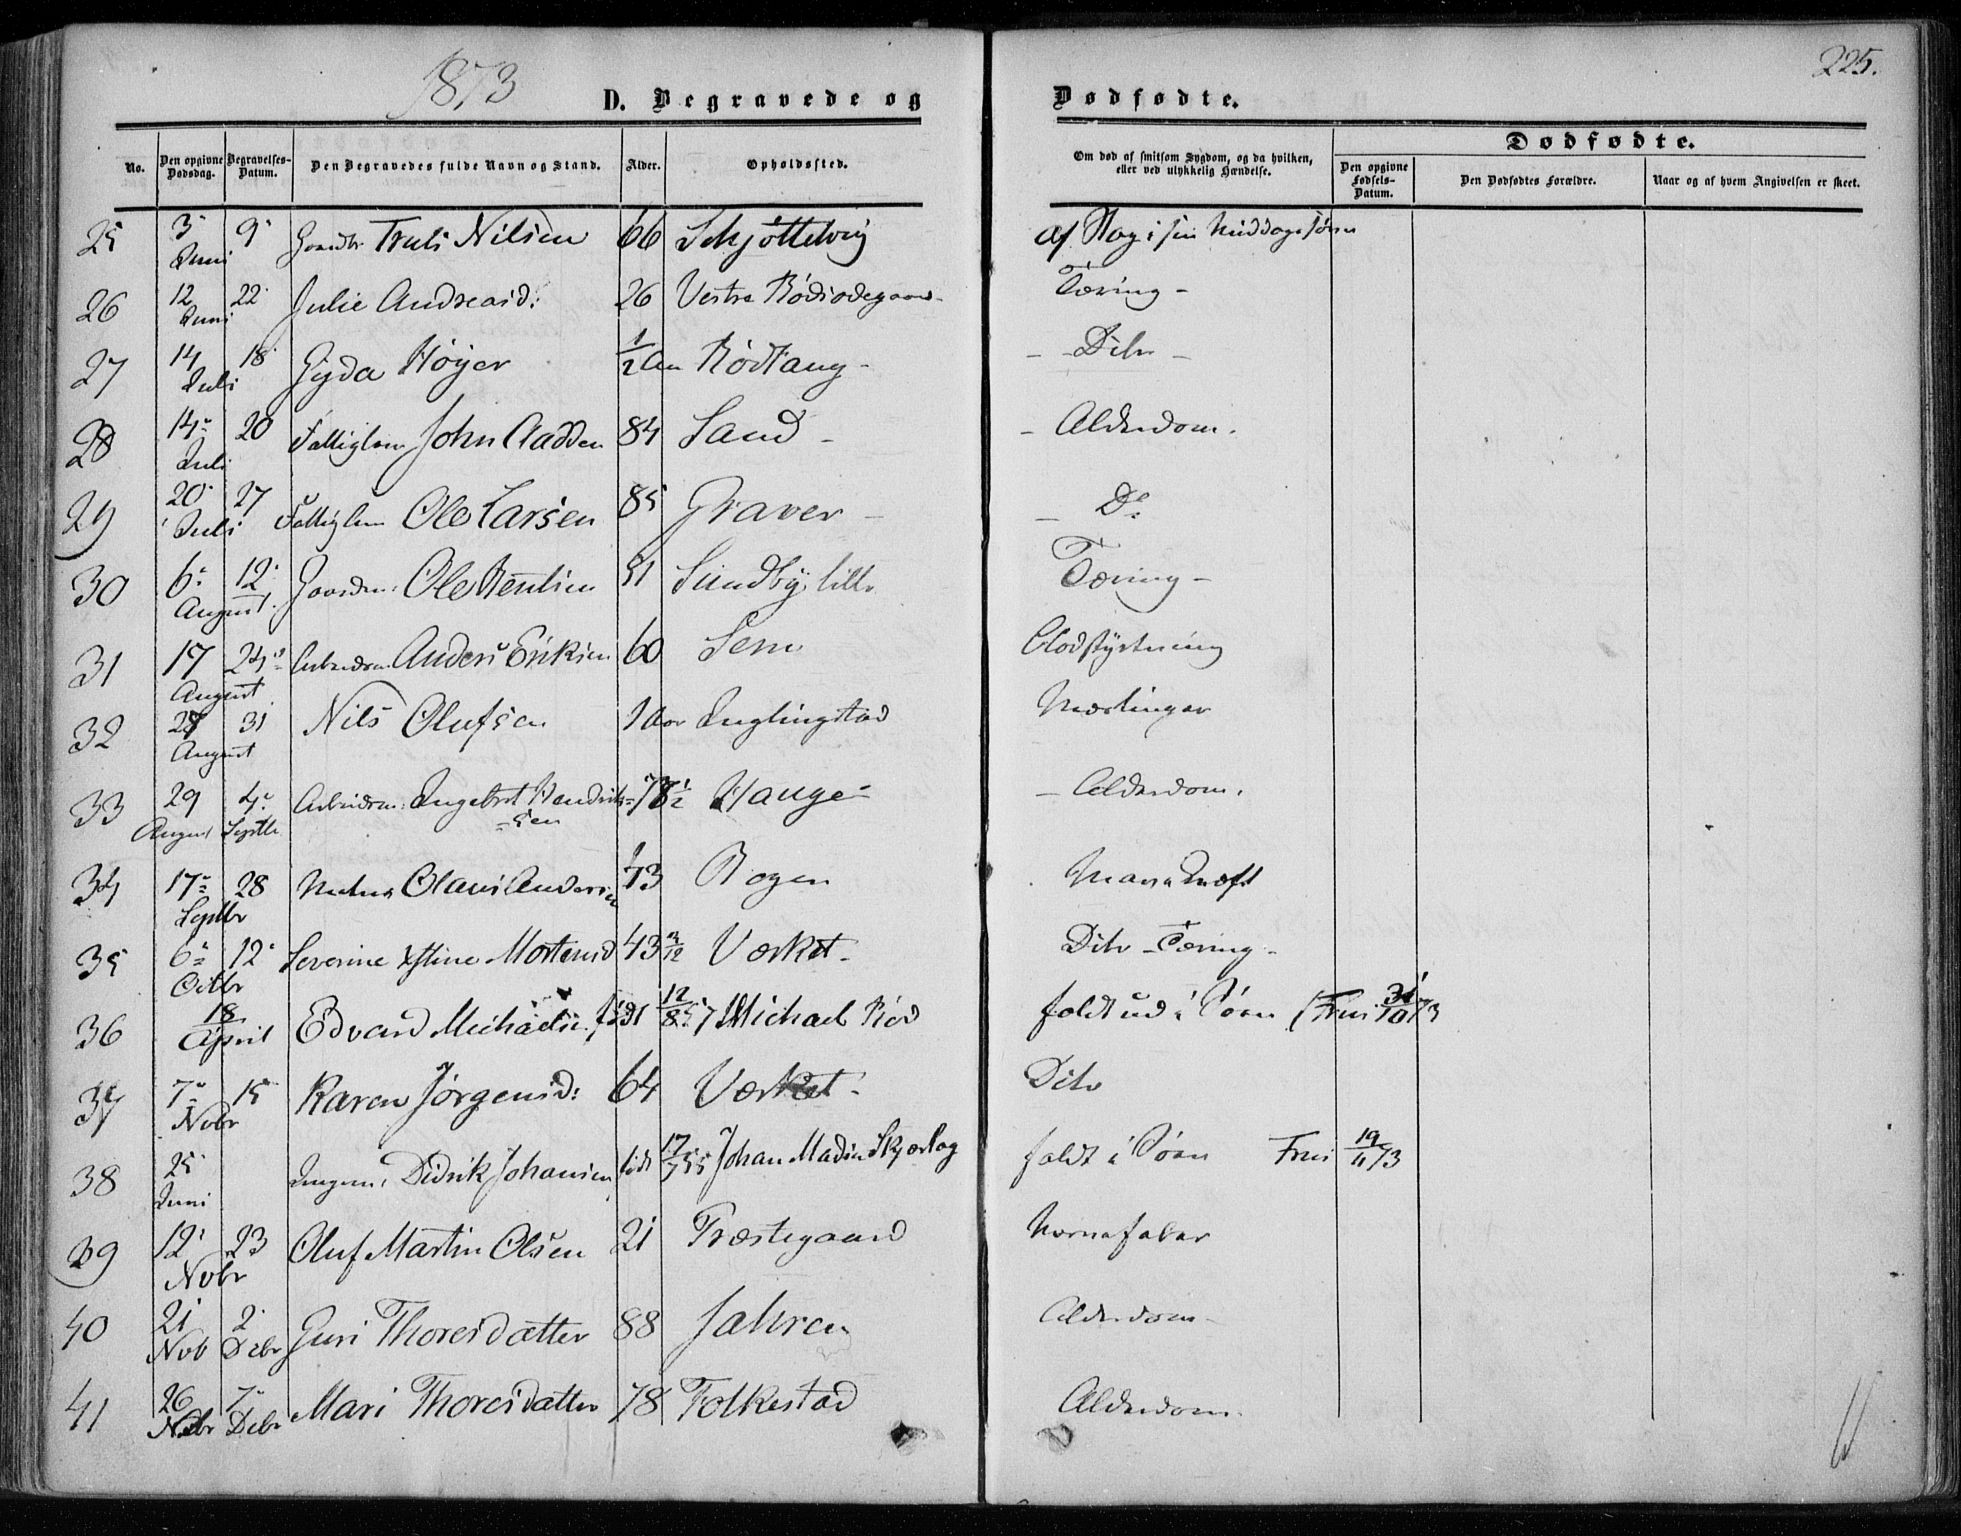 1873
D. Begravede og
Dødfødte.
225.
Dødfødte.
No.
Den opgivne Dødsdag.
Begravelses-Datum.
Den Begravedes fulde Navn og Stand.
Alder.
Opholdssted.
Om død af smitsom Sygdom, og da hvilken, eller ved ulykkelig Hændelse.
Den opgivne Fødsels-Datum.
Den Dødfødtes Forældre.
Naar og af hvem Angivelsen er skeet.
25 3 Juni 9 Truls Nilsen 66 Schjøttelvig af Slag i sin Middagssøvn
26 12 Juni 22 Julie Andreasd: 26 Vestre Rødsødegaard Tæring -
27 14 Juli 18 Gyda Høyer 1/2 Aar Rødtang - - Dito -
28 14 Juli 20 Fattiglem John Aadden 84 Sand - - Alderdom.
29 20 Juli 27 Fattiglem Ole Larsen 85 Graver - - Do
30 6 August 12 Gaardm: Ole Bentsen 51 Sundby lille Tæring -
31 17 August 24 Arbeidsm. Anders Eriksen 60 Sem Blodstyrtning
32 28 August 31 Nils Olufsen 1 Aar Inglingstad Mæslinger
33 29 August 4 Septbr Arbeidsm: Ingebret Hendrik=sen 78 1/2 Hauge - - Alderdom.
34 17 Septbr 28 Olaus Andersen 73 Bogen Mavekræft
35 6 Octbr 12 Severine Xstine Mortensd 43 3/12 Værket - Dito - Tæring -
36 18 April Edvard Michaelsen født 12/8 57 Michael Rød faldt ud i Søen (Fun 31/10 73
37 7 Novbr 15 Karen Jørgensd: 64 Værket - Dito
38 25 Juni Ungem. Didrik Johansen født 17/7 55 Johan Madsen Skjærlag faldt i Søen Fun 19/11 73
39 12 Novbr 23 Oluf Martin Olsen 21 Præstegaard Nervefeber
40 21 Nov 2 Debr Guri Thoresdatter 88 Jahren Alderdom -
41 26 Nobr 7 Debr Mari Thoresdatter 78 Folkestad Alderdom.